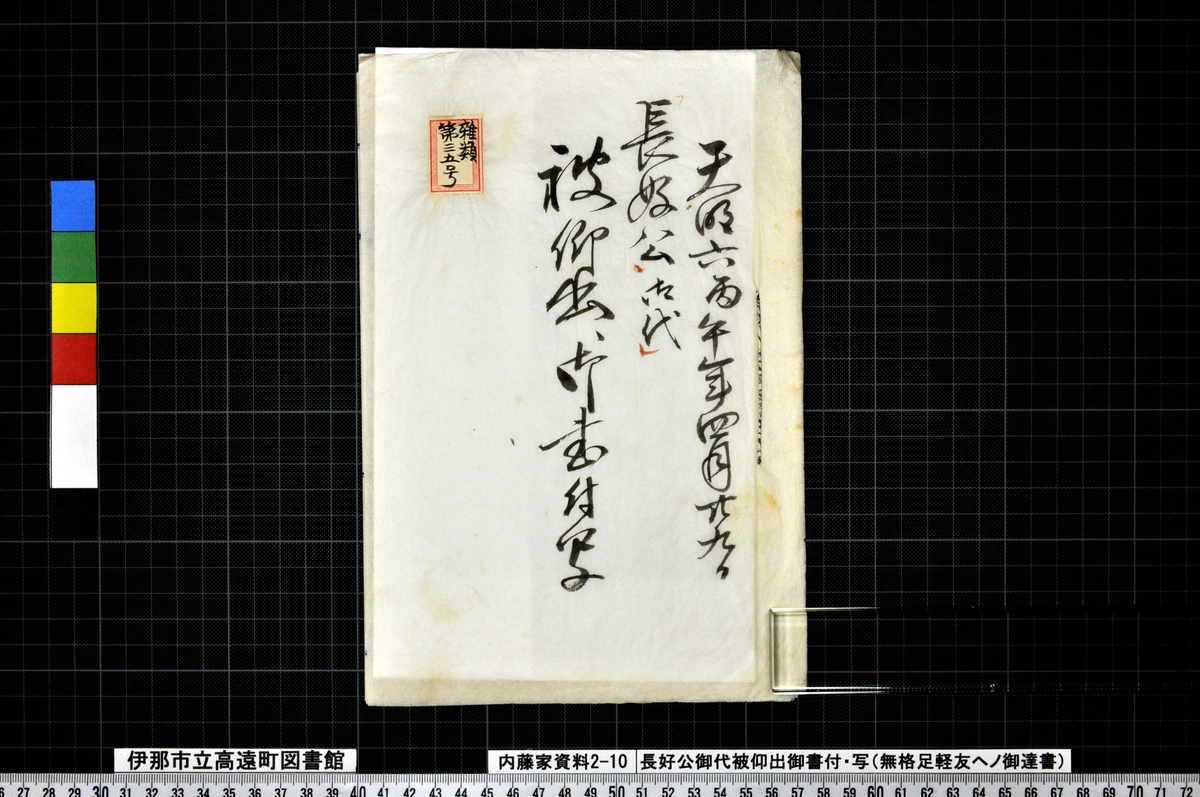 天明六丙午年四月廿九日
長好公御代
被仰出御書付写
雑類
第三五号
伊那市立高遠町図書館
内藤家資料2-10
長好公御代被仰出御書付・写(無格足軽友ヘノ御達書)
27 28 29 30 31 32 33 34 35 36 37 38 39 40 41 42 43 44 45 46 47 48 49 50 51 52 53 54 55 56 57 58 59 60 61 62 63 64 65 66 67 68 69 70 71 72